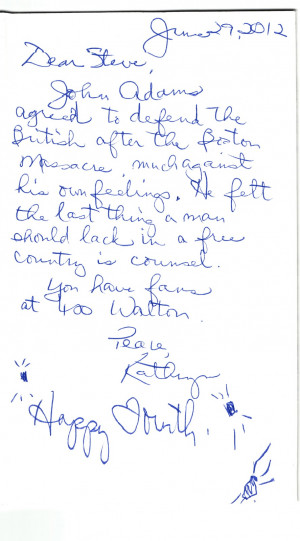 June 29, 2012
Dear Steve,
John Adams
agreed to defend the
British after the Boston
Massacre, much against
his own feelings. He felt
the last thing a man
should lack in a free
country is counsel.
You have fans
at 400 Walton.
Peace,
Kathryn
Happy Fourth.